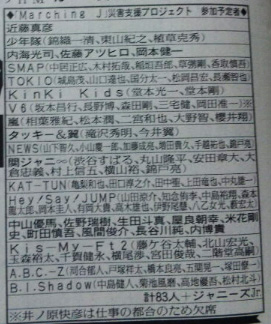 ◆「Marching J」災害支援プロジェクト 参加予定者◆
近藤真彦
少年隊(錦織一清、東山紀之、植草克秀)
内海光司、佐藤アツヒロ、岡本健一
SMAP(中居正広、木村拓哉、稲垣吾郎、草彅剛、香取慎吾)
TOKIO(城島茂、山口達也、国分太一、松岡昌宏、長瀬智也)
KinKi Kids(堂本光一、堂本剛)
V6(坂本昌行、長野博、森田剛、三宅健、岡田准一)※
嵐(相葉雅紀、松本潤、二宮和也、大野智、櫻井翔)
タッキー&翼(滝沢秀明、今井翼)
NEWS(山下智久、小山慶一郎、加藤成亮、増田貴久、手越祐也、錦戸亮)
関ジャニ∞(渋谷すばる、丸山隆平、安田章大、大
倉忠義、村上信五、横山裕、錦戸亮)
KAT-TUN(亀梨和也、田口淳之介、田中聖、上田竜也、中丸雄一)
Hey!Say!JUMP(山田涼介、知念侑李、中島裕翔、森本
龍太郎、岡本圭人、有岡大貴、高木雄也、伊野尾慧、八乙女光、薮宏太)
中山優馬、佐野瑞樹、生田斗真、屋良朝幸、米花剛
史、町田慎吾、風間俊介、長谷川純、内博貴
Kis-My-Ft2(藤ケ谷太輔、北山宏光、
玉森裕太、千賀健永、横尾渉、宮田俊哉、二階堂高嗣)
A.B.C-Z(河合郁人、戸塚祥太、橋本良亮、五関晃一、塚田僚一)
B.I.Shadow(中島健人、菊池風磨、高地優吾、松村北斗)
計83人+ジャニーズJr.
※井ノ原快彦は仕事の都合のため欠席